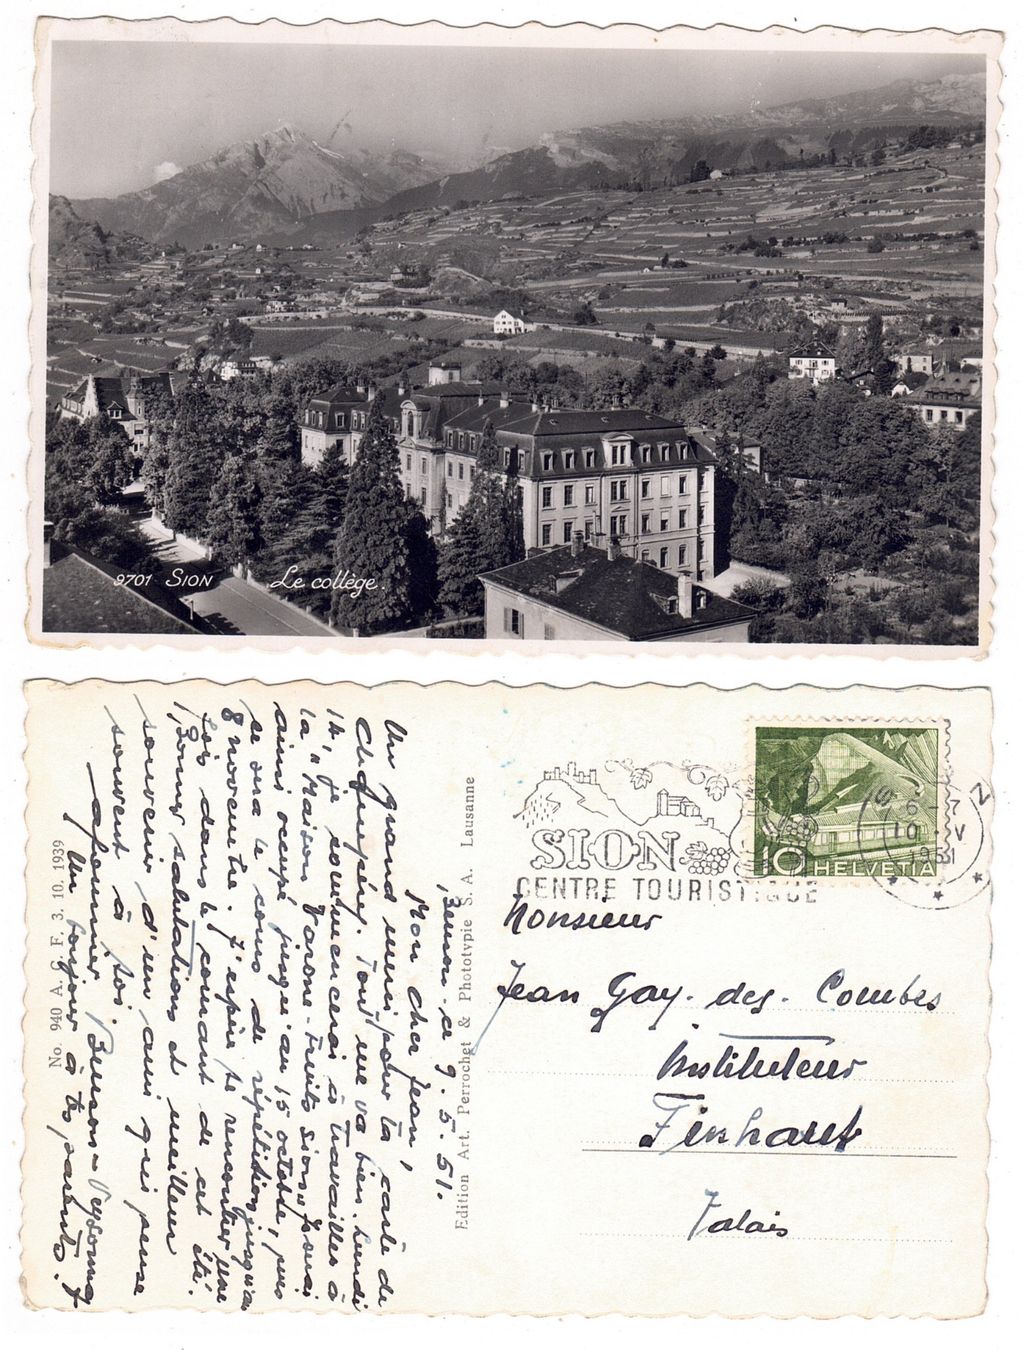 9701 SION Le collège.
SION
CENTRE TOURISTIQUE
10 HELVETIA
10.V
1951
Monsieur
Jean Gay-des-Combes
Instituteur
Finhaut
Valais
Edition Art. Perrochet & Phototypie S. A. Lausanne
No. 940 A. C. F. 3. 10. 1939
9. 5. 51.
Mon cher Jean,
Un grand merci pour ta carte de
Tout me va bien. Lundi
14, je commencerai à travailler à
la "Maison Varone-Fruits Sion". Je serai
ainsi occupé jusqu'au 15 octobre, puis
ce sera le cours de répétition jusqu'au
8 novembre. J'espère te rencontrer une
fois dans le courant de cet été.
Bonnes salutations et meilleur
souvenir d'un ami qui pense
souvent à toi.
Un bonjour à tes parents.